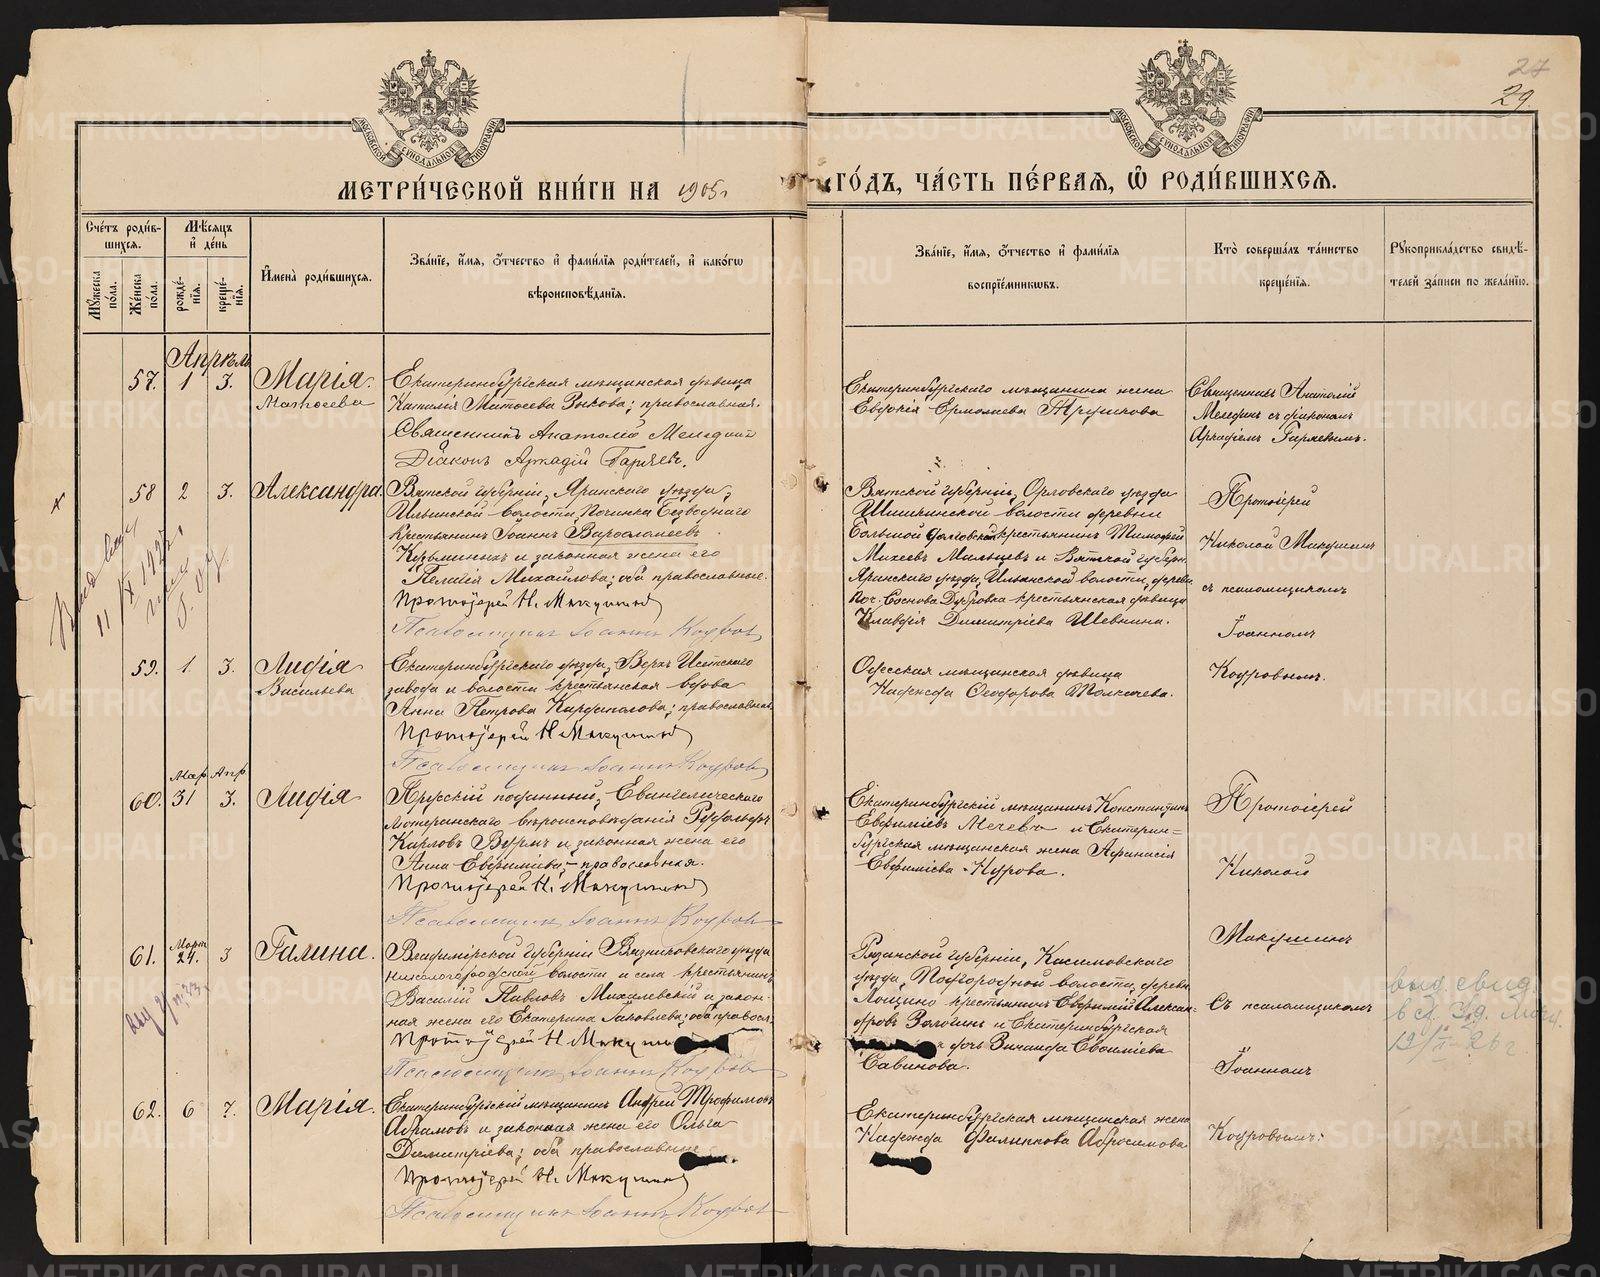 27
29.
МОСКОВСКОЙ СѴНОДАЛЬНОЙ ТИПОГРАФІИ
МОСКОВСКОЙ СѴНОДАЛЬНОЙ ТИПОГРАФІИ
МЕТРИ́ЧЕСКОЙ КНИ́ГИ НА 1905 г
ГО́ДЪ, ЧА́СТЬ ПЕ́РВАЯ, Ѡ РОДИ́ВШИХСЯ.
Сче́тъ роди́вшихся.
Мꙋ́жеска по́ла.
Же́нска по́ла.
Мѣ́сяцъ и́ де́нь
рожде́нїя.
креще́нїя.
И҆мена̀ роди́вшихся.
Зва́нїе, и҆́мя, ѻ҆́тчество и҆ фами́лїѧ роди́телей, и҆ како́гѡ
вѣроисповѣ́данїѧ.
Зва́нїе, и҆́мя, ѻ҆́тчество и҆ фами́лїѧ
воспрїе́мникѡвъ.
Кто̀ соверша́лъ та́инство
креще́нїѧ.
Рꙋкоприкла́дство свидѣ́-
телей за́писи по жела́нїю.
Апрѣль
57. 1 3. Марія.
Матѳеева
Екатеринбургская мѣщанская дѣвица
Наталія Матѳеева Зыкова; православная.
Священникъ Анатолій Мелединъ
Діаконъ Аркадій Гаряевъ.
Екатеринбургскаго мѣщанина жена
Евдокія Ермолаева Трушкова
Священникъ Анатолій
Мелединъ съ діакономъ
Аркадіемъ Гаряевымъ.
58 2 3. Александра
Вятской губерніи, Яранскаго уѣзда,
Ильинской волости, Починка Безводнаго
крестьянинъ Іоаннъ Варѳоломеевъ
Кузьминыхъ и законная жена его
Пелагія Михайлова; оба православные.
Протоіерей Н. Макушинъ
Псаломщикъ Іоаннъ Кодровъ
Вятской губерніи, Орловскаго уѣзда
волости деревни
крестьянинъ Тимоѳей
Михеевъ Мальцевъ и Вятской губерн.
Яранскаго уѣзда, Ильинской волости, дерев.
Поч. Соснова Дубровка крестьянская дѣвица
Клавдія Димитріева Шевнина.
Протоіерей
Николай Макушинъ
съ псаломщикомъ
Іоанномъ
Кодровымъ.
11/IX 1922 г
59. 1. 3. Лидія
Васильева
Екатеринбургскаго уѣзда, Верхъ Исетскаго
завода и волости крестьянская вдова
Анна Петрова Кардаполова; православная.
Протоіерей Н. Макушинъ
Псаломщикъ Іоаннъ Кодровъ
Одесская мѣщанская дѣвица
Надежда Ѳеодорова Толкачева.
Мар. Апр.
60. 31 3. Лидія
Прусскій подданный, Евангелическаго
лютеранскаго вѣроисповѣданія Рудольфъ
Карловъ Вурмъ и законная жена его
Анна Евфиміева – православная.
Протоіерей Н. Макушинъ
Псаломщикъ Іоаннъ Кодровъ
Екатеринбургскій мѣщанинъ Константинъ
Евфиміевъ Мечевъ и Екатерин=
бургская мѣщанская жена Аѳанасія
Евфиміева Нурова.
Протоіерей
Николай
Макушинъ
Съ псаломщикомъ
Іоанномъ
Кодровымъ.
Март
61. 24. 3 Галина.
Владимірской губерніи Вязниковскаго уѣзда
волости и села крестьянинъ
Василій Павловъ Михалевскій и закон-
ная жена его Екатерина Іаковлева; оба правосл.
Протоіерей Н. Макуши
Псаломщикъ Іоаннъ Кодровъ
Рязанской губерніи, Касимовскаго
уѣзда, Подгородной волости, деревни
Лощино крестьянинъ Евфимій Алексан-
дровъ Волочинъ и Екатеринбургская
дочь Зинаида Евсиміева
Савинова.
выд. свид.
62. 6 7. Марія.
Екатеринбургскій мѣщанинъ Андрей Трофимовъ
Абрамовъ и законная жена его Ольга
Димитріева; оба православные
Протоіерей Н. Макушинъ
Псаломщикъ Іоаннъ Кодровъ
Екатеринбургская мѣщанская жена
Надежда Филиппова Абросимова
METRIKI.GASO-URAL.RU